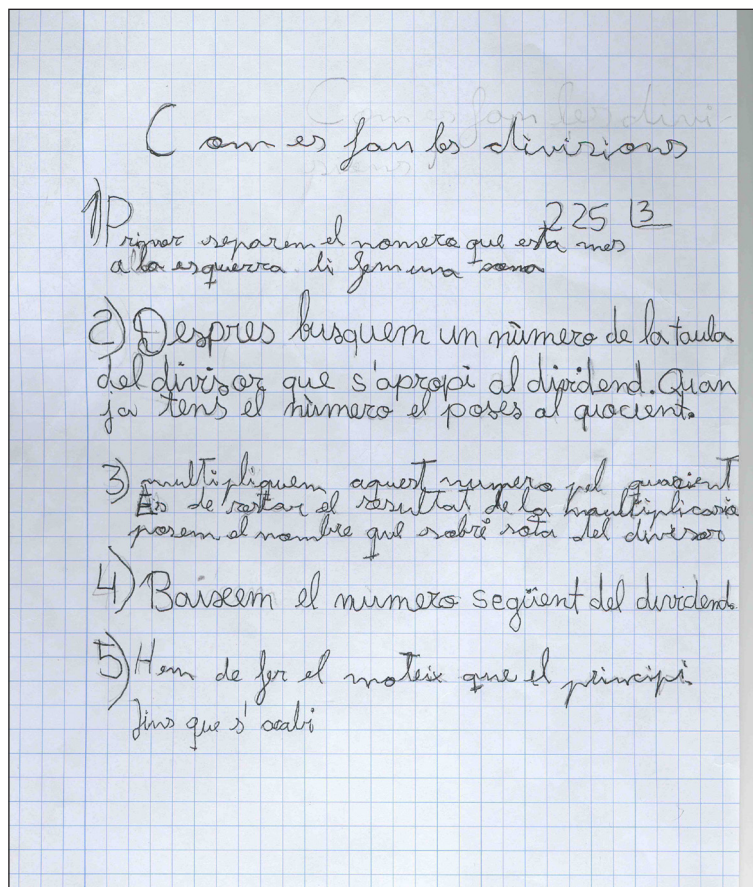 Com es fan les divisions
225 |3
1) Primer separem el nomero que esta mes
a la esquerra li fem una
2) Despres busquem un número de la taula
del divisor que s'apropi al dividend. Quan
ja tens el número el poses al quocient.
3) multipliquem aquest numero pel quozient
Es de restar el resultat de la moultiplicasio
posem el nombre que sobri sota del divisor
4) Baixem el numero següent del dividend.
5) Hem de fer el mateix que el principi
fins que s'acabi